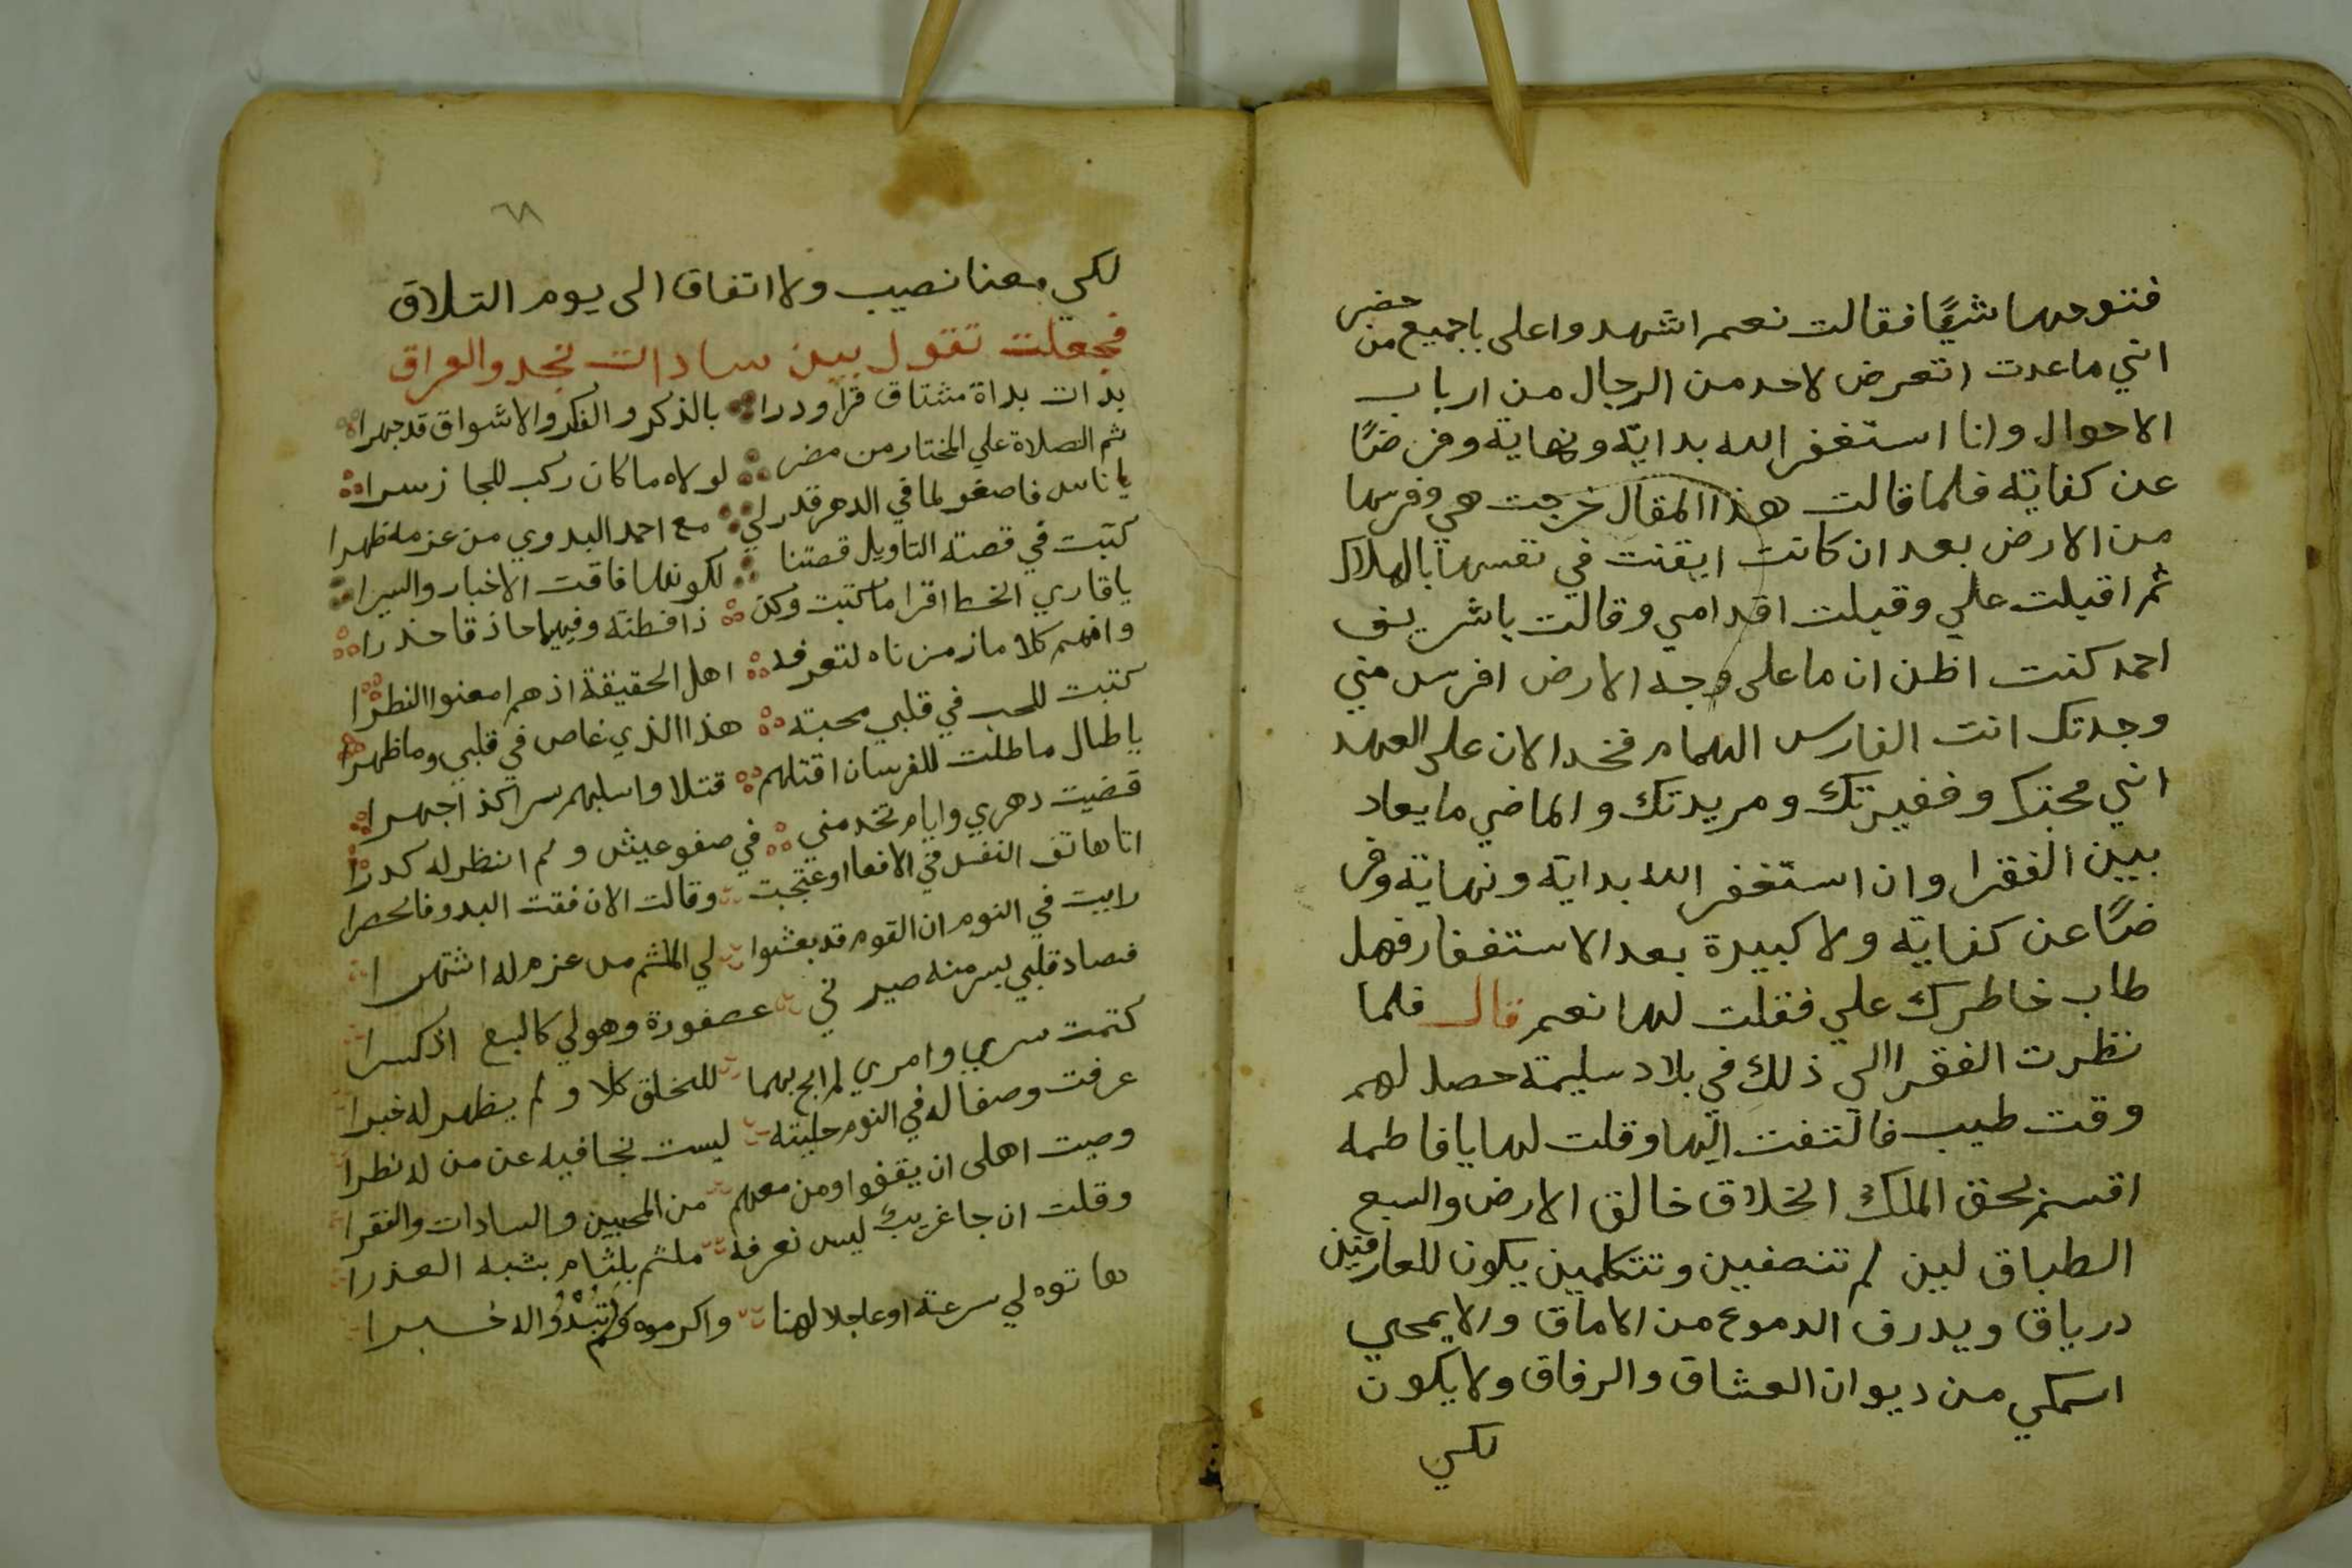 فتتوجهها شيًا فقالت نعم اشهدوا على ياجميع من حضر
انني ما عدت اتعرض لاحد من الرجال من ارباب
الاحوال وانا استغفر الله بداية ونهاية وفرضًا
عن كفاية فلما قالت هذا المقال خرجت هي وفرسها
من الارض بعد ان كانت ايقنت في نفسها بالهلاك
ثم اقبلت علي وقبلت اقدامي وقالت ياشريف
احمد كنت اظن ان ما على وجه الارض افرس مني
وجدتك انت الفارس الهمام فخد الان على العهد
انني محبتك وفقيرتك ومريدتك والماضي ما يعاد
بين الفقرا وان استغفر الله بداية ونهاية وفر
ضًا عن كفاية ولا كبيرة بعد الاستغفار فهل
طاب خاطرك علي فقلت لها نعم قال فلما
نظرت الفقرا الى ذلك في بلاد سليمة حصل لهم
وقت طيب فالتفت اليها وقلت لها يا فاطمه
اقسم بحق الملك الخلاق خالق الارض والسبع
الطباق لين لم تنصفين وتتكلمين يكون للعارفين
درياق ويدرف الدموع من الاماق والا يمحي
اسمكي من ديوان العشاق والرفاق ولا يكون
لكي
٦٨
لكي معنا نصيب ولا اتفاق الى يوم التلاق
فجعلت تقول بين سادات نجد والعراق
بدات بداة مشتاق قرا ودرا بالذكر والفكر والاشواق قد جهرا
ثم الصلاة علي المختار من مضر لولاه ما كان ركب للحجاز سرا
يا ناس فاصغو لما في الدهر قدر لي مع احمد البدوي من عزمه ظهرا
كتبت في قصته التاويل قصتنا لكونها فاقت الاخبار والسيرا
يا قاري الخط اقرا ما كتبت وكن ذا فطنة وفهيما حاذقا حذرا
وافهم كلاما زمزمناه لتعرفه اهل الحقيقة اذ هم امعنوا النظرا
كتبت للحب في قلبي محبته هذا الذي غاص في قلبي وما ظهرا
يا طال ما طلت للفرسان اقتلهم قتلا واسلبهم سرا كذا جهرا
قضيت دهري وايام تخدمني في صفو عيش ولم انظر له كدرا
اتا هاتف النفس في الافعا اوعتجبت وقالت الان فقت البدو فالحصرا
رايت في النوم ان القوم قد بعثوا لي الملثم من عزم له اشتهرا
فصاد قلبي بسر منه صيرني عصفورة وهو لي كالسبع اذ كسرا
كتمت سري وامري لم ابح بهما للخلق كلا ولم يظهر له خبرا
عرفت وصفا له في النوم حليته ليست بخافيه عن من له نظرا
وصيت اهلى ان يقفوا ومن معهم من المحبين والسادات والفقرا
وقلت ان جا غريب ليس نعرفه ملثم بلثام يشبه العذرا
هاتوه لي سرعة او عاجلا لهنا واكرموه ولم تبدوا له خسبرا